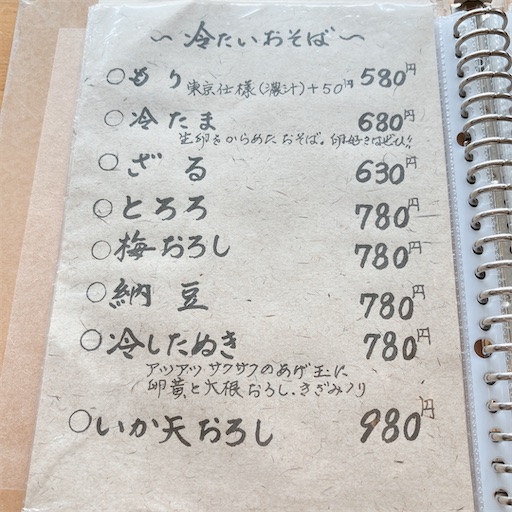 ～冷たいおそば～
○もり 東京仕様(濃汁)+50円 580円
○冷たま 680円
生卵をからめたおそば。卵好きはぜひ!!
○ざる 630円
○とろろ 780円
○梅おろし 780円
○納豆 780円
○冷したぬき 780円
アツアツサクサクのあげ玉に
卵黄と大根おろし、きざみノリ
○いか天おろし 980円